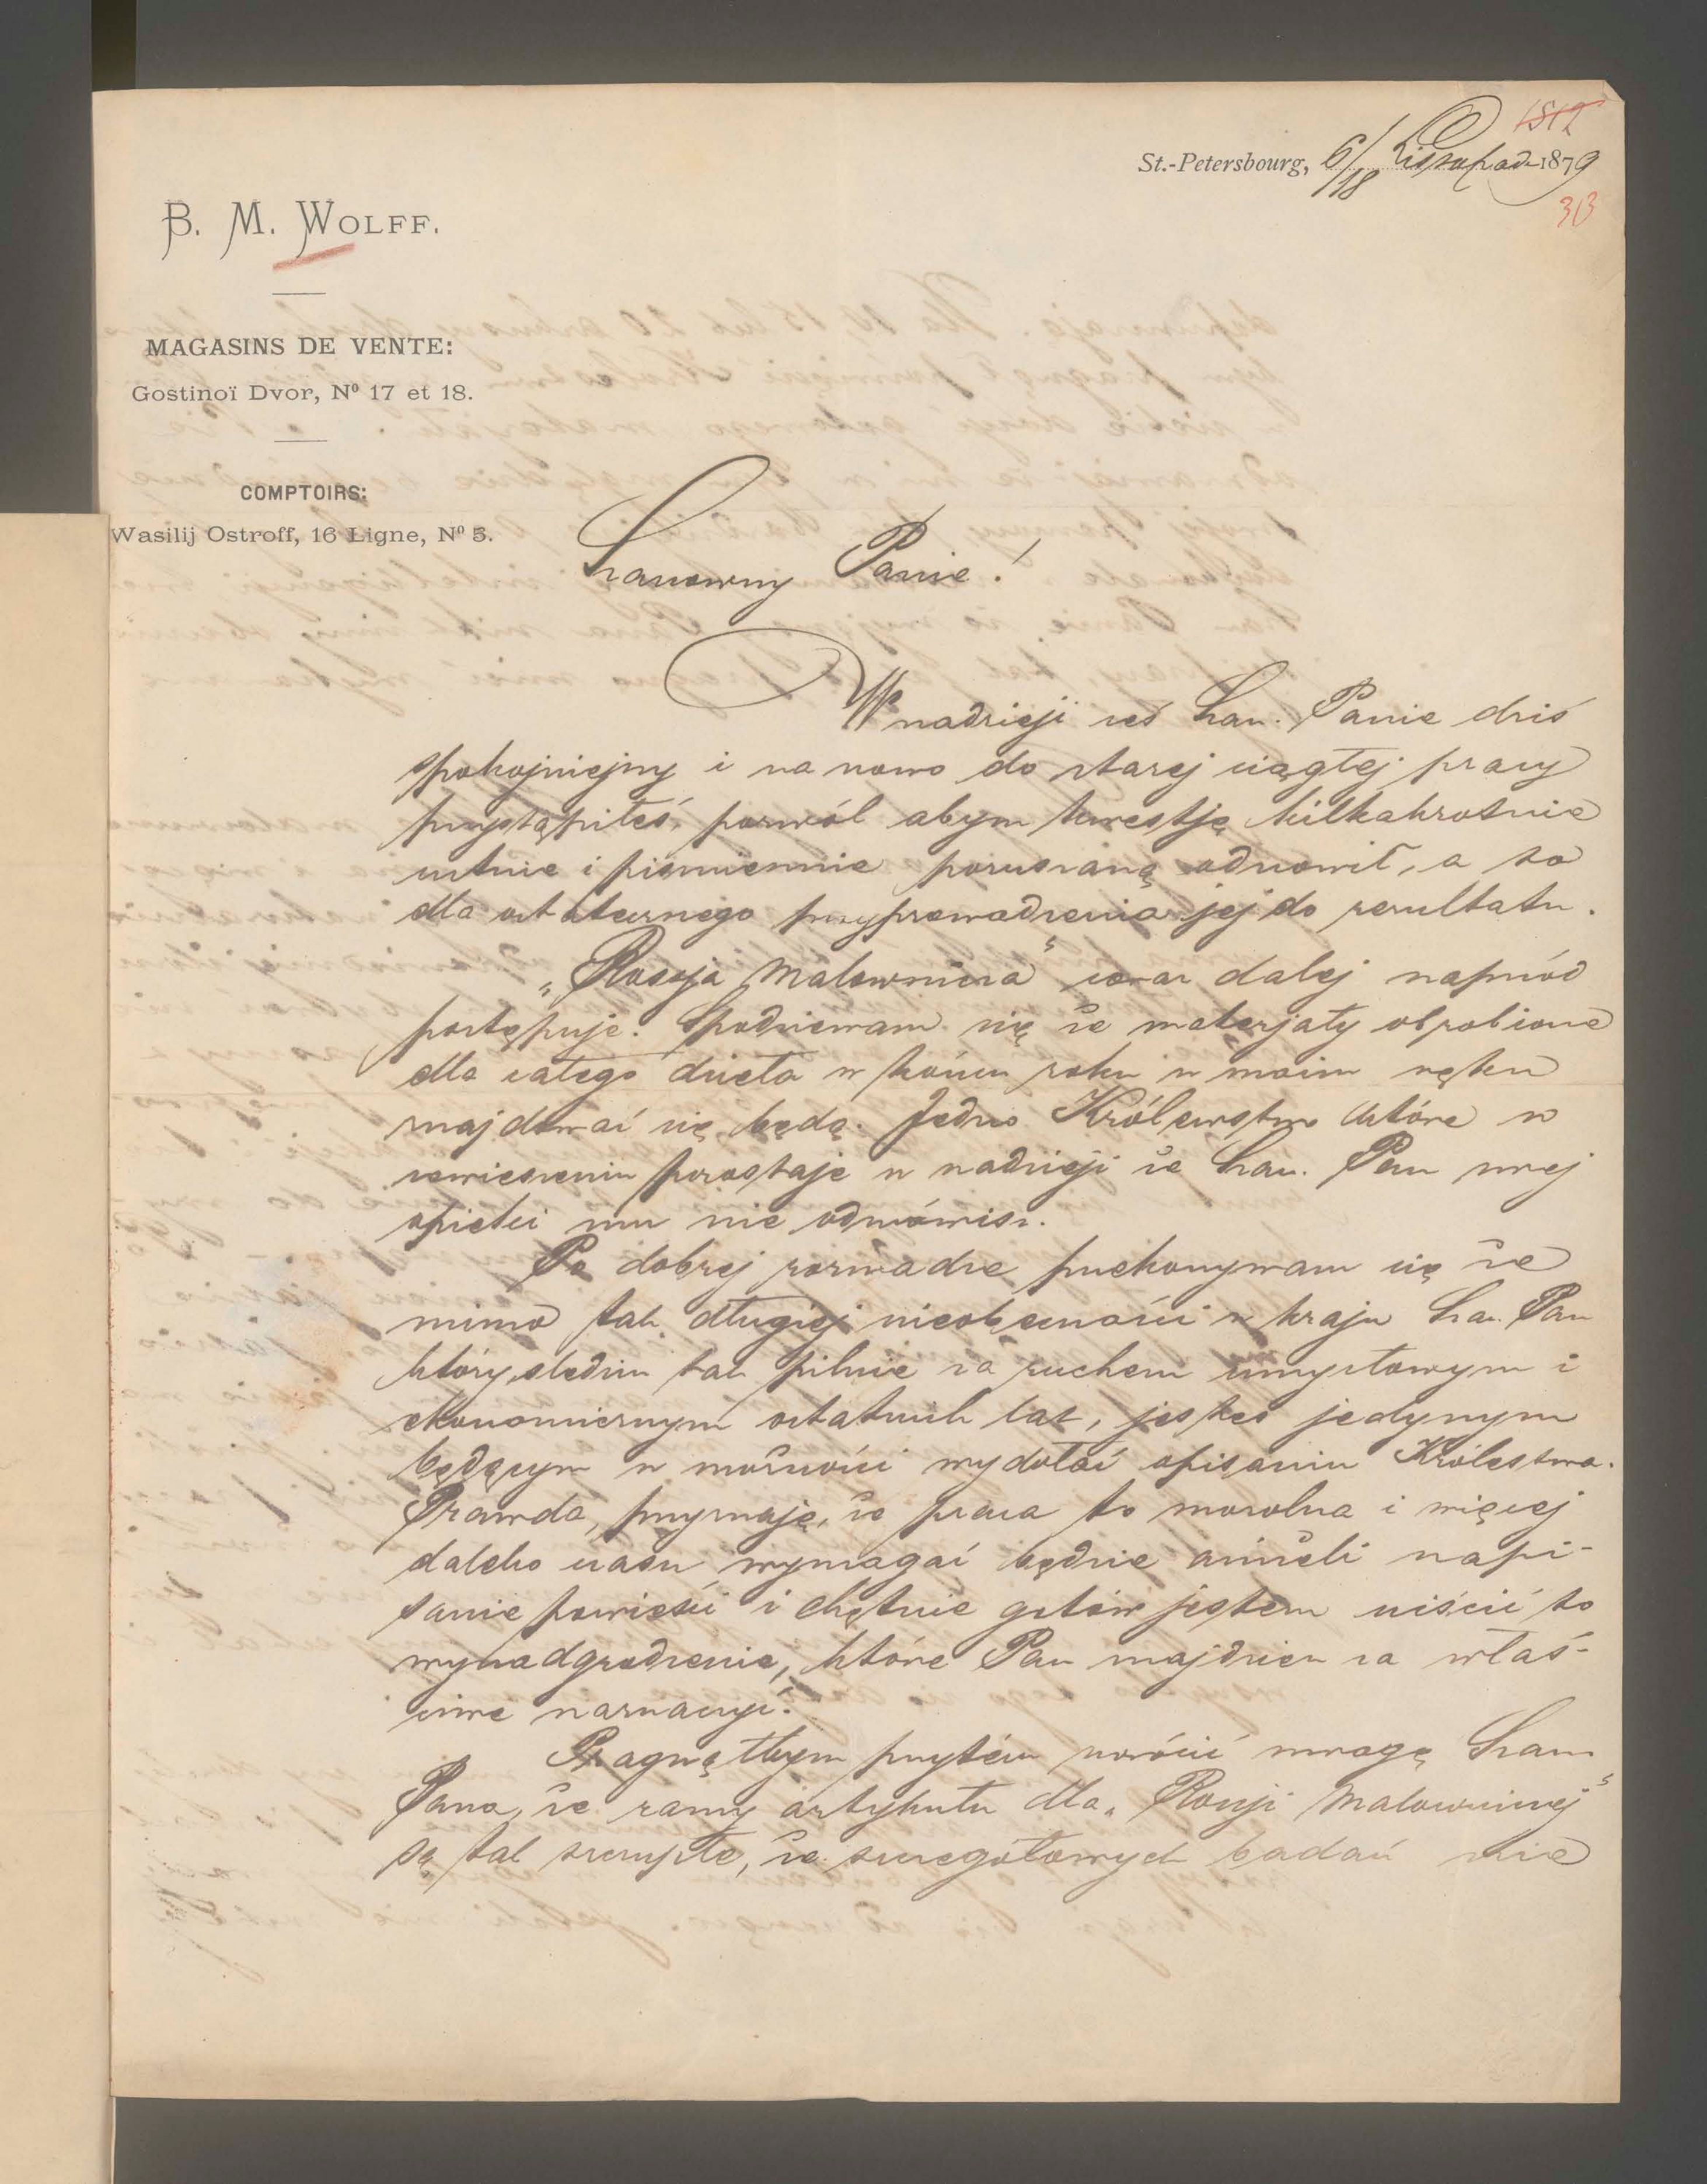 1512
St.-Petersbourg, 6/18 Listopad 1879
313
B. M. WOLFF.
MAGASINS DE VENTE:
Gostinoï Dvor, Nº 17 et 18.
COMPTOIRS:
Wasilij Ostroff, 16 Ligne, Nº 5.
Szanowny Panie!
W nadzieji żeś Szan. Panie dziś
spokojniejszy i na nowo do starej ciągłej pracy
przystąpiłeś, pozwól abym kwestję kilkakrotnie
ustnie i piśmiennie poruszaną odnowił, a to
dla ostatecznego przyprowadzenia jej do rezultatu.
„Rossja Malownicza" coraz dalej naprzód
postępuje. Spodziewam się że materjały obrobione
dla całego dzieła w końcu roku w moim ręku
znajdować się będą. Jedno Królewstwo które w
zawieszeniu pozostaje w nadzieji że Szan. Pan swej
opieki mu nie odmówisz.
Po dobrej rozwadze przekonywam się że
mimo tak długiej nieobecności w kraju Szan. Pan
który śledzisz tak pilnie za ruchem umysłowym i
ekonomicznym ostatnich lat, jesteś jedynym
będącym w możności wydołać opisaniu Królestwa.
Prawda, przyznaję, że praca to mozolna i więcej
daleko czasu wymagać będzie aniżeli napi-
sanie powieści i chętnie gotów jestem uiścić to
wynadgrodzenie, które Pan znajdziesz za właś-
ciwe naznaczyć.
Pragnąłbym przytém zwrócić uwagę Szan.
Pana, że ramy artykułu dla „Rossji Malowniczej"
są tak szczupłe, że szczegółowych badań nie